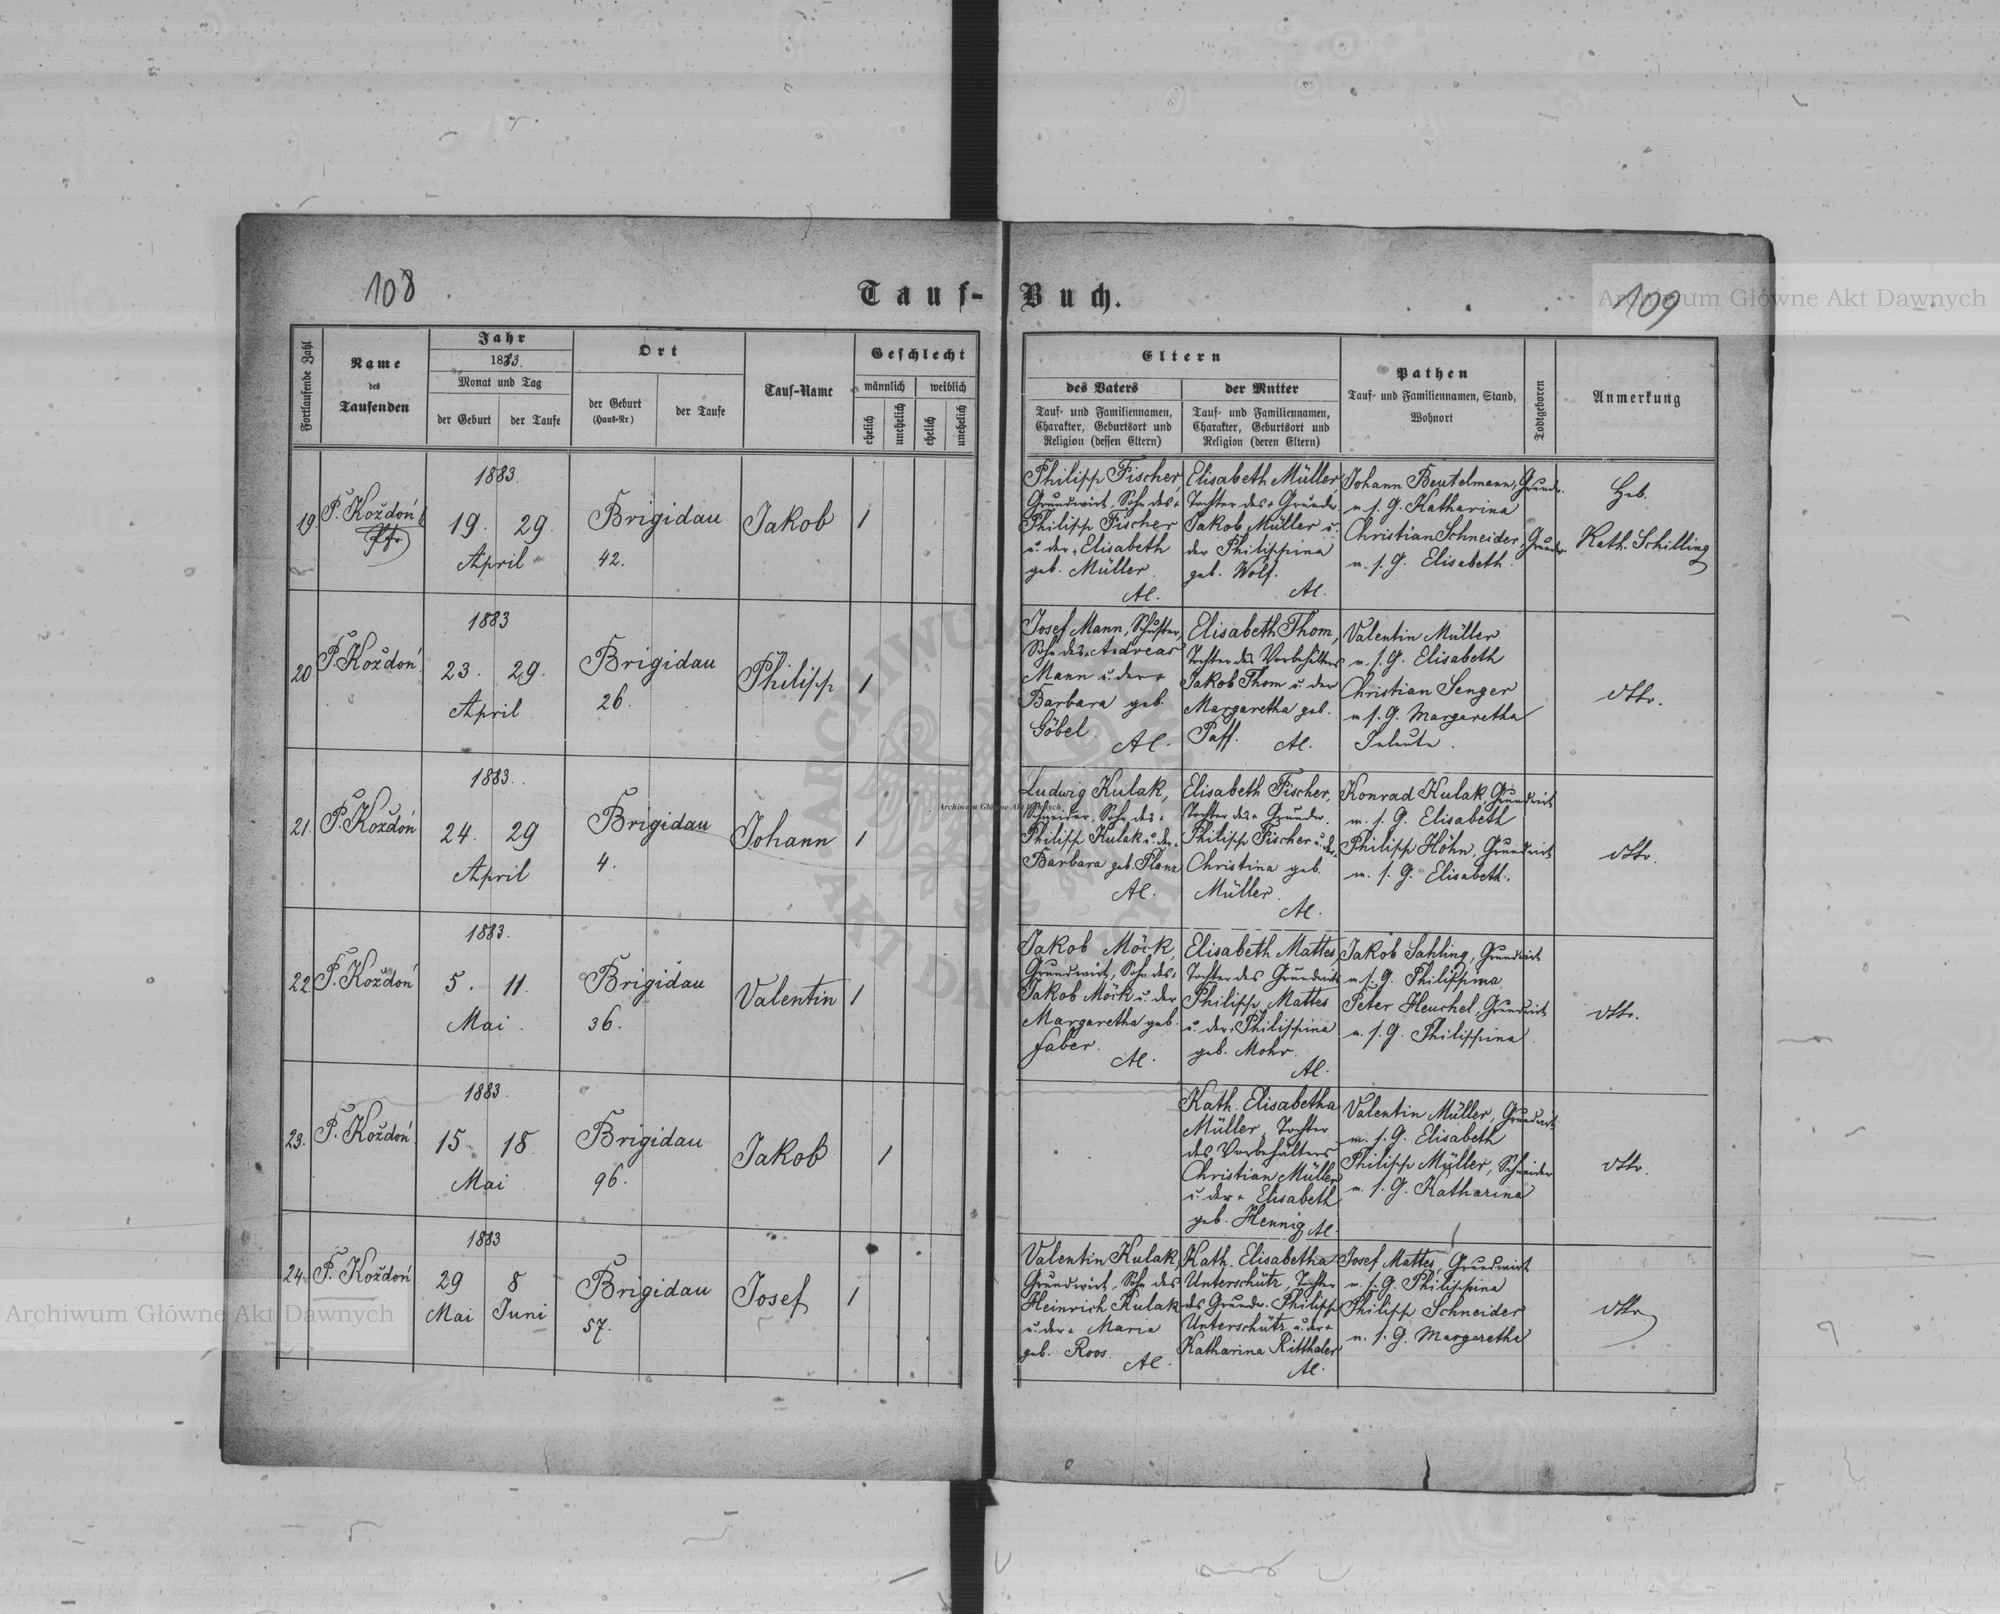 108
Tauf-
Buch.
109
Archiwum Główne Akt Dawnych
Fortlaufende Zahl
Name
des
Taufenden
Jahr
1883.
Monat und Tag
der Geburt
der Taufe
Ort
der Geburt
(Haus-Nr)
der Taufe
Tauf-Name
Geschlecht
männlich
weiblich
ehelich
unehelich
ehelich
unehelich
Eltern
des Vaters
Tauf- und Familiennamen,
Charakter, Geburtsort und
Religion (dessen Eltern)
der Mutter
Tauf- und Familiennamen,
Charakter, Geburtsort und
Religion (deren Eltern)
Pathen
Tauf- und Familiennamen, Stand,
Wohnort
Todtgeboren
Anmerkung
19.
P. Koždoń
Pfr
1883.
19. 29.
April
Brigidau
42.
Jakob
1
Philipp Fischer
Grundwirt, Sohn des +
Philipp Fischer
u. der + Elisabeth
geb. Müller.
AC.
Elisabeth Müller,
Tochter des + Grundw.
Jakob Müller u.
der Philippina
geb. Wolf.
AC.
Johann Beutelmann, Grundw.
u. s. G. Katharina
Christian Schneider, Grundw.
u. s. G. Elisabeth.
Heb.
Kath. Schilling
20
P. Koždoń
1883
23. 29.
April
Brigidau
26.
Philipp
1
Josef Mann, Schuster,
Sohn des + Andreas
Mann u. der +
Barbara geb.
Göbel.
AC.
Elisabeth Thom,
Tochter des Vorbehälters
Jakob Thom u. der
Margaretha geb.
Paff. AC.
Valentin Müller
u. s. G. Elisabeth
Christian Senger
u. s. G. Margaretha
Inleute.
dtto.
21.
P. Koždoń
1883.
24. 29
April
Brigidau
4.
Johann
1
Ludwig Kulak,
Schneider, Sohn des +
Philipp Kulak u. der +
Barbara geb. Planz
AC.
Elisabeth Fischer,
Tochter des + Grundw.
Philipp Fischer u. der +
Christina geb.
Müller.
AC.
Konrad Kulak Grundwirt
u. s. G. Elisabeth
Philipp Höhn, Grundwirt
u. s. G. Elisabeth.
dtto.
22.
P. Koždoń
1883.
5. 11.
Mai.
Brigidau
36.
Valentin
1
Jakob Möck,
Grundwirt, Sohn des +
Jakob Möck u. der
Margaretha geb.
Faber.
AC.
Elisabeth Mattes
Tochter des Grundwirts
Philipp Mattes
u. der + Philippina
geb. Mohr.
AC.
Jakob Sahling, Grundwirt
u. s. G. Philippina
Peter Heuchel, Grundwirt
u. s. G. Philippina.
dtto.
23.
P. Koždoń
1883.
15. 18.
Mai
Brigidau
96.
Jakob
1
Kath. Elisabetha
Müller, Tochter
des Vorbehälters
Christian Müller
u. der + Elisabeth
geb. Hennig AC.
Valentin Müller, Grundwirt
u. s. G. Elisabeth
Philipp Müller, Schneider
u. s. G. Katharina
dtto.
24.
P. Koždoń
1883
29 8
Mai Juni
Brigidau
57.
Josef
1
Valentin Kulak,
Grundwirt, Sohn des
Heinrich Kulak
u. der + Maria
geb. Roos.
AC.
Kath. Elisabetha
Unterschütz, Tochter
des Grundw. Philipp
Unterschütz u. der +
Katharina Ritthaler
AC.
Josef Mattes, Grundwirt
u. s. G. Philippina
Philipp Schneider
u. s. G. Margaretha
dtto
Archiwum Główne Akt Dawnych
Archiwum Główne Akt Dawnych